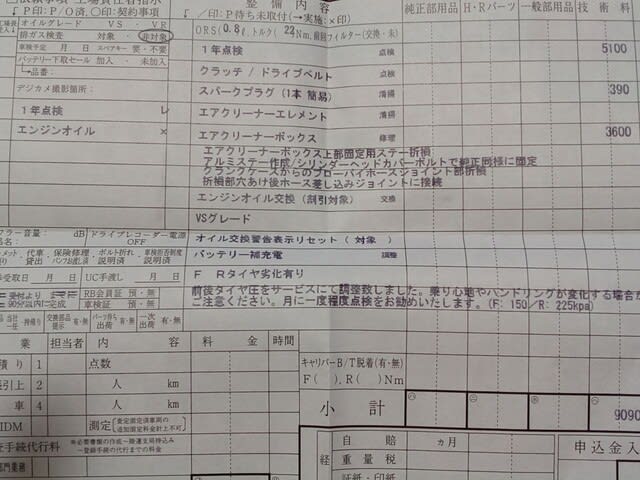 整備内容
純正部品 H・Rパーツ 一般部品 技術料
P印:P/O済、〇印:契約事項
/印:P待ち未取付(→実施:×印)
オイルグレード VS ・ VR
ORS(0.8ℓ,トルク( 22Nm,
フィルター(交換・未)
排ガス検査 対象・非対象
車検予定 月 日 スペアキー 要・不要
1年点検 点検 5100
バッテリー下取セール 加入 ・ 未加入
└→品番:
クラッチ / ドライブベルト 点検
デジカメ撮影箇所:
スパークプラグ (1本 簡易) 清掃 390
1年点検 レ
エアクリーナーエレメント 清掃
エンジンオイル ×
エアクリーナーボックス 修理 3600
エアクリーナーボックス上部固定用ステー折損
アルミステー作成/シリンダーヘッドカバーボルトで純正同様に固定
クランクケースからのブローバイホースジョイント部折損
折損部穴あけ後ホース差し込みジョイントに接続
エンジンオイル交換 (割引対象) 交換
VSグレード
フラー音量: dB ドライブレコーダー電源
OFF
オイル交換警告表示リセット ( 対象 )
バッテリー補充電 調整
F Rタイヤ劣化有り
受取日 月 日 UC手渡し 月 日
前後タイヤ圧をサービスにて調整致しました。乗り心地やハンドリングが変化する場合が
ご注意ください。月に一度程度点検をお勧めいたします。(F: 150/R: 225kpa)
RB会員証 預・無
車検証 預・無
業 担当者 内容 料金 時間
積り 1 点数
引上 2 人 km
車 4 人 km
IDM 測定
キャリパーB/T脱着(有・無)
F( ), R( )Nm
小計 9090
査手続代行料
自賠 ヵ月
重量税
証紙・印紙
申込金入